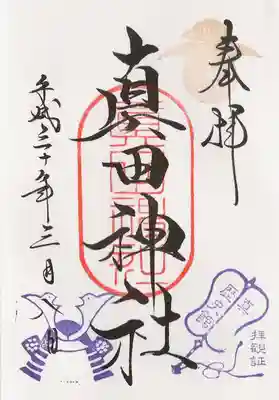 奉拝
真田神社
平成三十年三月 日
拝観証